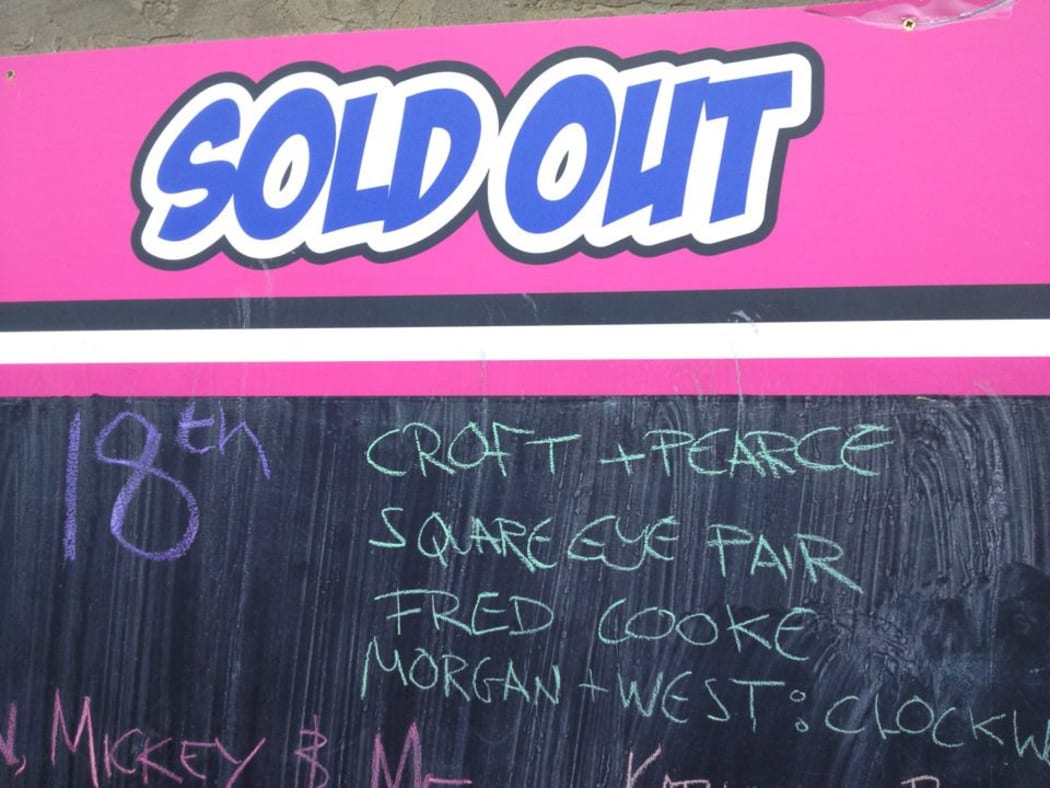 SOLD OUT
18th
CROFT + PEARCE
SQUARE EYE PAIR
FRED COOKE
MORGAN + WEST: CLOCKW
, MICKEY & ME